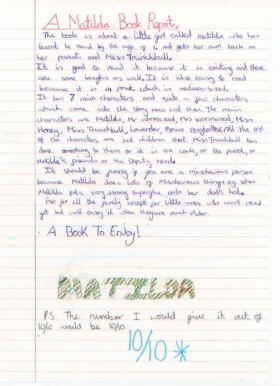 A Matilda Book Report.
The book is about a little girl called matilda who has
learnt to read by the age of 4 and gets her own back on
her parents and Miss Trunchbull.
It is good to read it because it is exciting and there
are some laughs as well. It is also easy to read
because it is in print which is
It has 7 main characters and quite a few characters
which come into the story now and then. The main
characters are Matilda, Mr wormwood, Mrs wormwood, Miss
Honey, Miss Trunchbull, Lavender, Bruce All the rest
of the characters are just children that Miss Trunchbull has
done something to them or it is the cook, or the parrot, or
matilda's friends or the Deputy heads
It should be funny if you are a mischievous person
because Matilda does lots of Mischievous things eg when
Matilda puts very strong superglue onto her dad's hat.
for all the family except for little ones who won't read
yet but will enjoy it when they are much older.
A Book To Enjoy!
MATILDA
P.S. The number I would give it out of
10/10 would be 10/10.
10/10 *